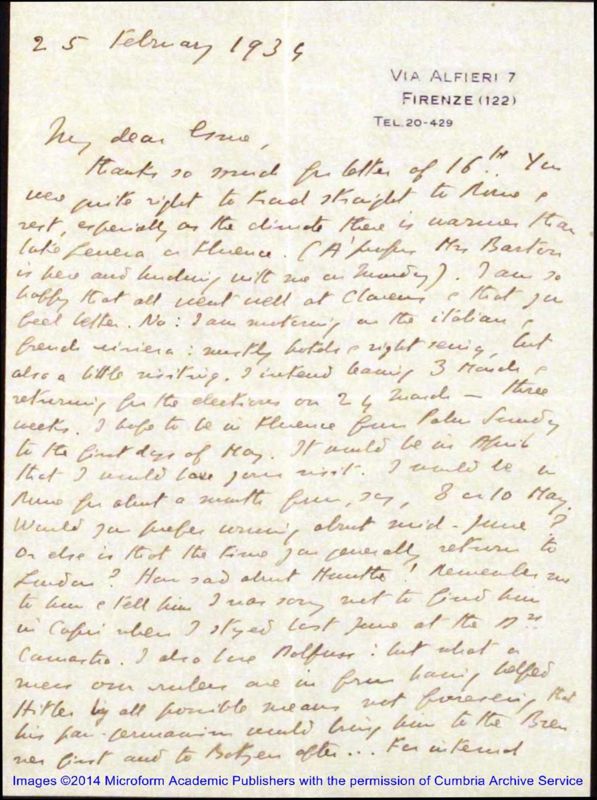 25 February 1934
VIA ALFIERI 7
FIRENZE (122)
TEL. 20-429
My dear Esme,
thanks so much for letter of 16th. You
were quite right to travel straight to Rome &
rest, especially as the climate there is warmer than
Geneva or Florence. (A propos Mrs Barton
is here and lunching with me on Monday). I am so
happy that all went well at Clarens & that you
feel better. No: I am motoring on the italian &
french riviera: mostly hotels & sight seeing, but
also a little visiting. I intend leaving 3 March &
returning for the elections on 24 March — three
weeks. I hope to be in Florence from Palm Sunday
to the first days of May. It would be in April
that I would love your visit. I would be in
Rome for about a month from, say, 8 or 10 May.
Would you prefer coming about mid-June?
Or else is that the time you generally return to
London? How sad about ! Remember me
to him & tell him I was sorry not to find him
in Capri when I stayed last June at the
Camastra. I also love Dolfuss: but what a
mess our rulers are in from having helped
Hitler by all possible means not foreseeing that
his pan-germanism would bring him to the Bren
ner first and to Botzen after... For internal
Images ©2014 Microform Academic Publishers with the permission of Cumbria Archive Service